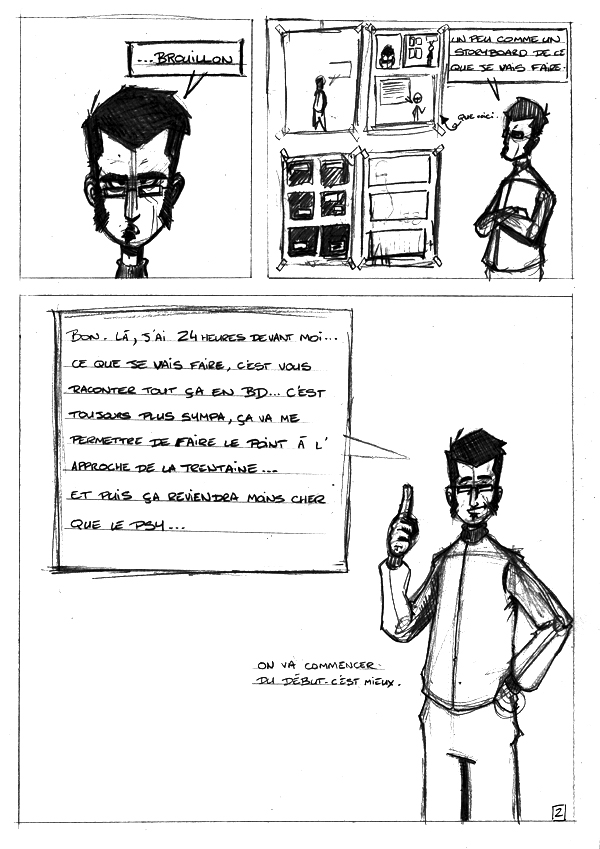 ...BROUILLON
UN PEU COMME UN
STORYBOARD DE CE
QUE JE VAIS FAIRE.
QUE VOICI.
BON. LÀ, J'AI 24 HEURES DEVANT MOI...
CE QUE JE VAIS FAIRE, C'EST VOUS
RACONTER TOUT ÇA EN BD... C'EST
TOUJOURS PLUS SYMPA, ÇA VA ME
PERMETTRE DE FAIRE LE POINT À L'
APPROCHE DE LA TRENTAINE...
ET PUIS ÇA REVIENDRA MOINS CHER
QUE LE PSY...
ON VA COMMENCER
DU DÉBUT. C'EST MIEUX.
2